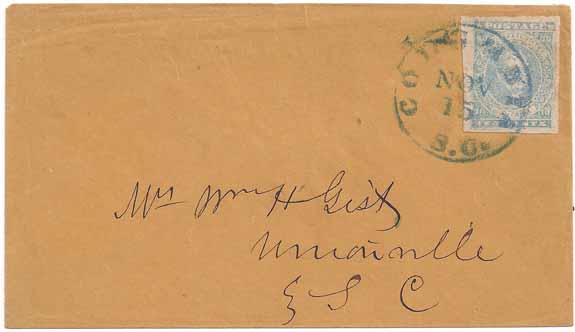 POSTAGE
NOV
15
S.C.
TEN CENTS
Mrs Wm H Gist
Unionville
S C